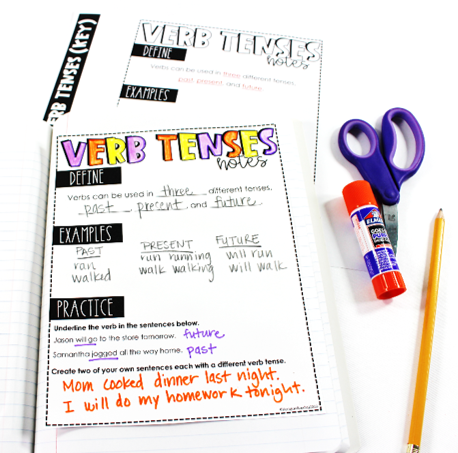 VERB TENSES
notes
DEFINE
Verbs can be used in three different tenses,
past, present, and future.
EXAMPLES
VERB TENSES (KEY)
VERB TENSES
notes
DEFINE
Verbs can be used in three different tenses,
past, present, and future.
EXAMPLES
PAST PRESENT FUTURE
ran run running will run
walked walk walking will walk
PRACTICE
Underline the verb in the sentences below.
Jason will go to the store tomorrow. future
Samantha jogged all the way home. past
Create two of your own sentences each with a different verb tense.
Mom cooked dinner last night.
I will do my homework tonight.
ELMER'S